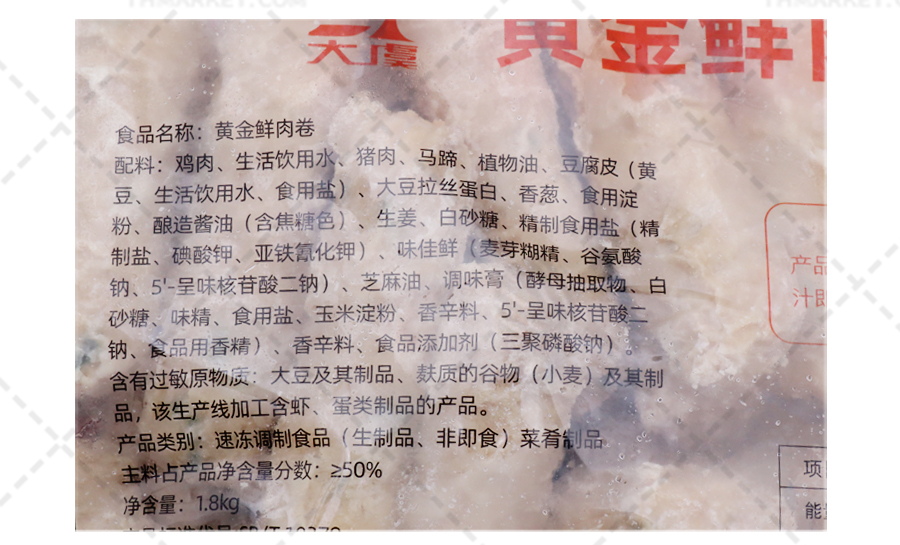 THMARKET.COM
大虞 黄金鲜
食品名称：黄金鲜肉卷
配料：鸡肉、生活饮用水、猪肉、马蹄、植物油、豆腐皮（黄
豆、生活饮用水、食用盐）、大豆拉丝蛋白、香葱、食用淀
粉、酿造酱油（含焦糖色）、生姜、白砂糖、精制食用盐（精
制盐、碘酸钾、亚铁氰化钾）、味佳鲜（麦芽糊精、谷氨酸
钠、5'-呈味核苷酸二钠）、芝麻油、调味膏（酵母抽取物、白
砂糖、味精、食用盐、玉米淀粉、香辛料、5'-呈味核苷酸二
钠、食品用香精）、香辛料、食品添加剂（三聚磷酸钠）。
含有过敏原物质：大豆及其制品、麸质的谷物（小麦）及其制
品，该生产线加工含虾、蛋类制品的产品。
产品类别：速冻调制食品（生制品、非即食）菜肴制品
主料占产品净含量分数：≥50%
净含量：1.8kg
产品
汁即
项
能